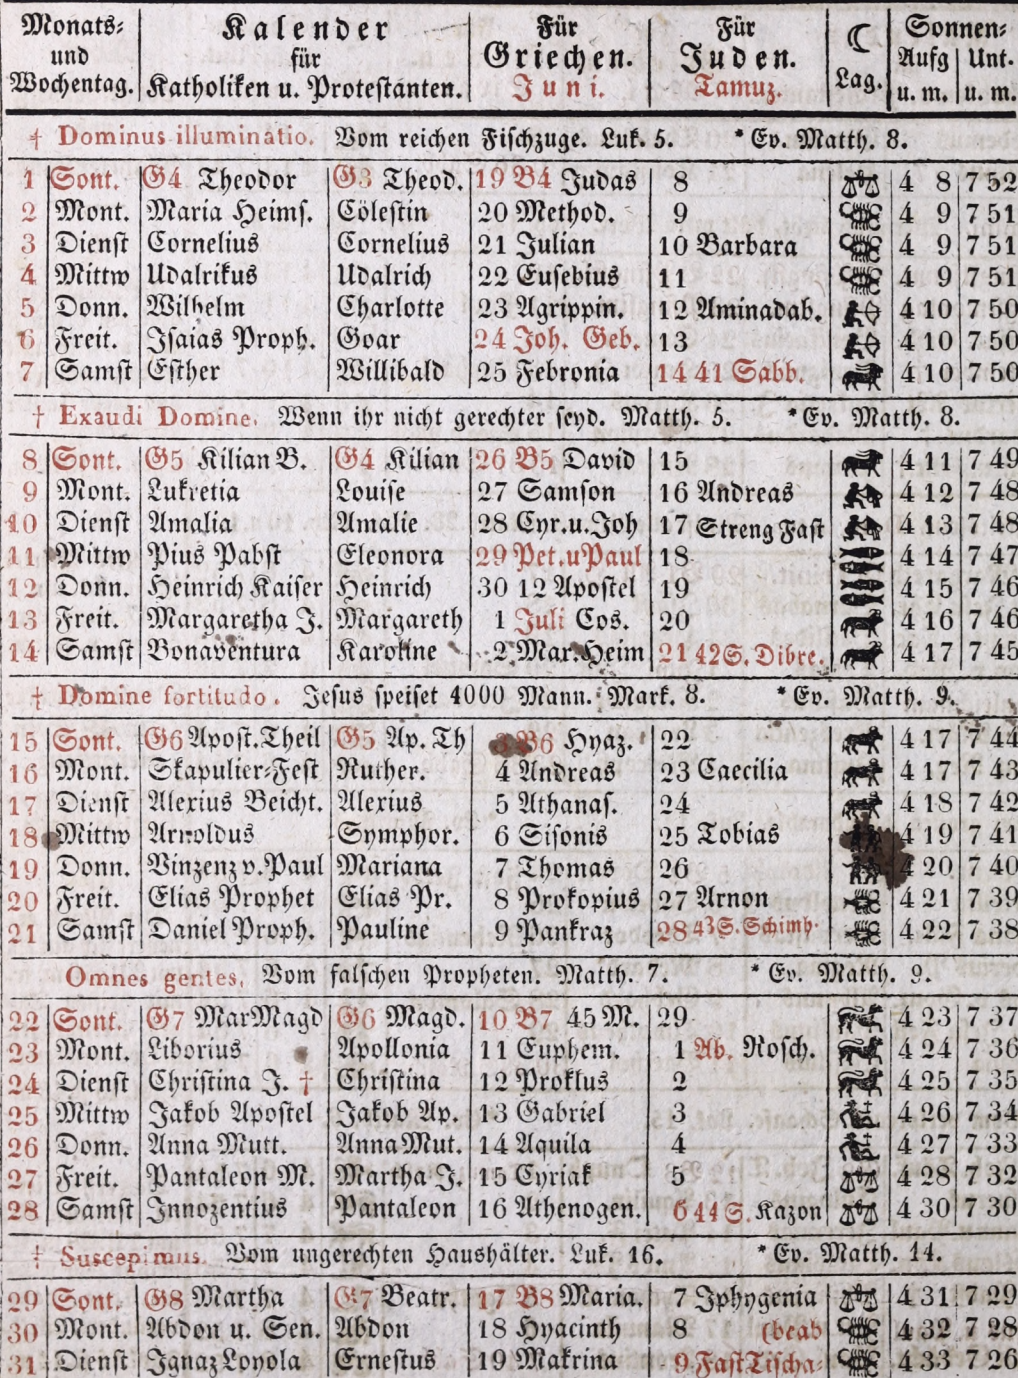 Monats- und Wochentag. | Kalender für Katholiken u. Protestanten. | Für Griechen. Juni. | Für Juden. Tamuz. | ☾ Lag. | Sonnen- Aufg u. m. | Unt. u. m.
† Dominus illuminatio. Vom reichen Fischzuge. Luk. 5. * Ev. Matth. 8.
1 Sont. G4 Theodor G3 Theod. 19 B4 Judas 8 4 8 7 52
2 Mont. Maria Heims. Cölestin 20 Method. 9 4 9 7 51
3 Dienst Cornelius Cornelius 21 Julian 10 Barbara 4 9 7 51
4 Mittw Udalrikus Udalrich 22 Eusebius 11 4 9 7 51
5 Donn. Wilhelm Charlotte 23 Agrippin. 12 Aminadab. 4 10 7 50
6 Freit. Isaias Proph. Goar 24 Joh. Geb. 13 4 10 7 50
7 Samst Esther Willibald 25 Febronia 14 41 Sabb. 4 10 7 50
† Exaudi Domine. Wenn ihr nicht gerechter seyd. Matth. 5. * Ev. Matth. 8.
8 Sont. G5 Kilian B. G4 Kilian 26 B5 David 15 4 11 7 49
9 Mont. Lukretia Louise 27 Samson 16 Andreas 4 12 7 48
10 Dienst Amalia Amalie 28 Cyr.u.Joh 17 Streng Fast 4 13 7 48
11 Mittw Pius Pabst Eleonora 29 Pet.uPaul 18 4 14 7 47
12 Donn. Heinrich Kaiser Heinrich 30 12 Apostel 19 4 15 7 46
13 Freit. Margaretha J. Margareth 1 Juli Cos. 20 4 16 7 46
14 Samst Bonaventura Karoline 2 Mar.Heim 21 42 S. Dibre. 4 17 7 45
† Domine fortitudo. Jesus speiset 4000 Mann. Mark. 8. * Ev. Matth. 9.
15 Sont. G6 Apost.Theil G5 Ap. Th B6 Hyaz. 22 4 17 7 44
16 Mont. Skapulier-Fest Ruther. 4 Andreas 23 Caecilia 4 17 7 43
17 Dienst Alexius Beicht. Alexius 5 Athanas. 24 4 18 7 42
18 Mittw Arnoldus Symphor. 6 Sisonis 25 Tobias 4 19 7 41
19 Donn. Vinzenz v. Paul Mariana 7 Thomas 26 4 20 7 40
20 Freit. Elias Prophet Elias Pr. 8 Prokopius 27 Arnon 4 21 7 39
21 Samst Daniel Proph. Pauline 9 Pankraz 28 43 S. Schimh. 4 22 7 38
Omnes gentes. Vom falschen Propheten. Matth. 7. * Ev. Matth. 9.
22 Sont. G7 MarMagd G6 Magd. 10 B7 45 M. 29 4 23 7 37
23 Mont. Liborius Apollonia 11 Euphem. 1 Ab. Rosch. 4 24 7 36
24 Dienst Christina J. † Christina 12 Proklus 2 4 25 7 35
25 Mittw Jakob Apostel Jakob Ap. 13 Gabriel 3 4 26 7 34
26 Donn. Anna Mutt. Anna Mut. 14 Aquila 4 4 27 7 33
27 Freit. Pantaleon M. Martha J. 15 Cyriak 5 4 28 7 32
28 Samst Innozentius Pantaleon 16 Athenogen. 6 44 S. Kazon 4 30 7 30
† Suscepimus. Vom ungerechten Haushälter. Luk. 16. * Ev. Matth. 14.
29 Sont. G8 Martha G7 Beatr. 17 B8 Maria. 7 Iphygenia 4 31 7 29
30 Mont. Abdon u. Sen. Abdon 18 Hyacinth 8 (beab 4 32 7 28
31 Dienst Ignaz Loyola Ernestus 19 Makrina 9 Fast Tischa- 4 33 7 26